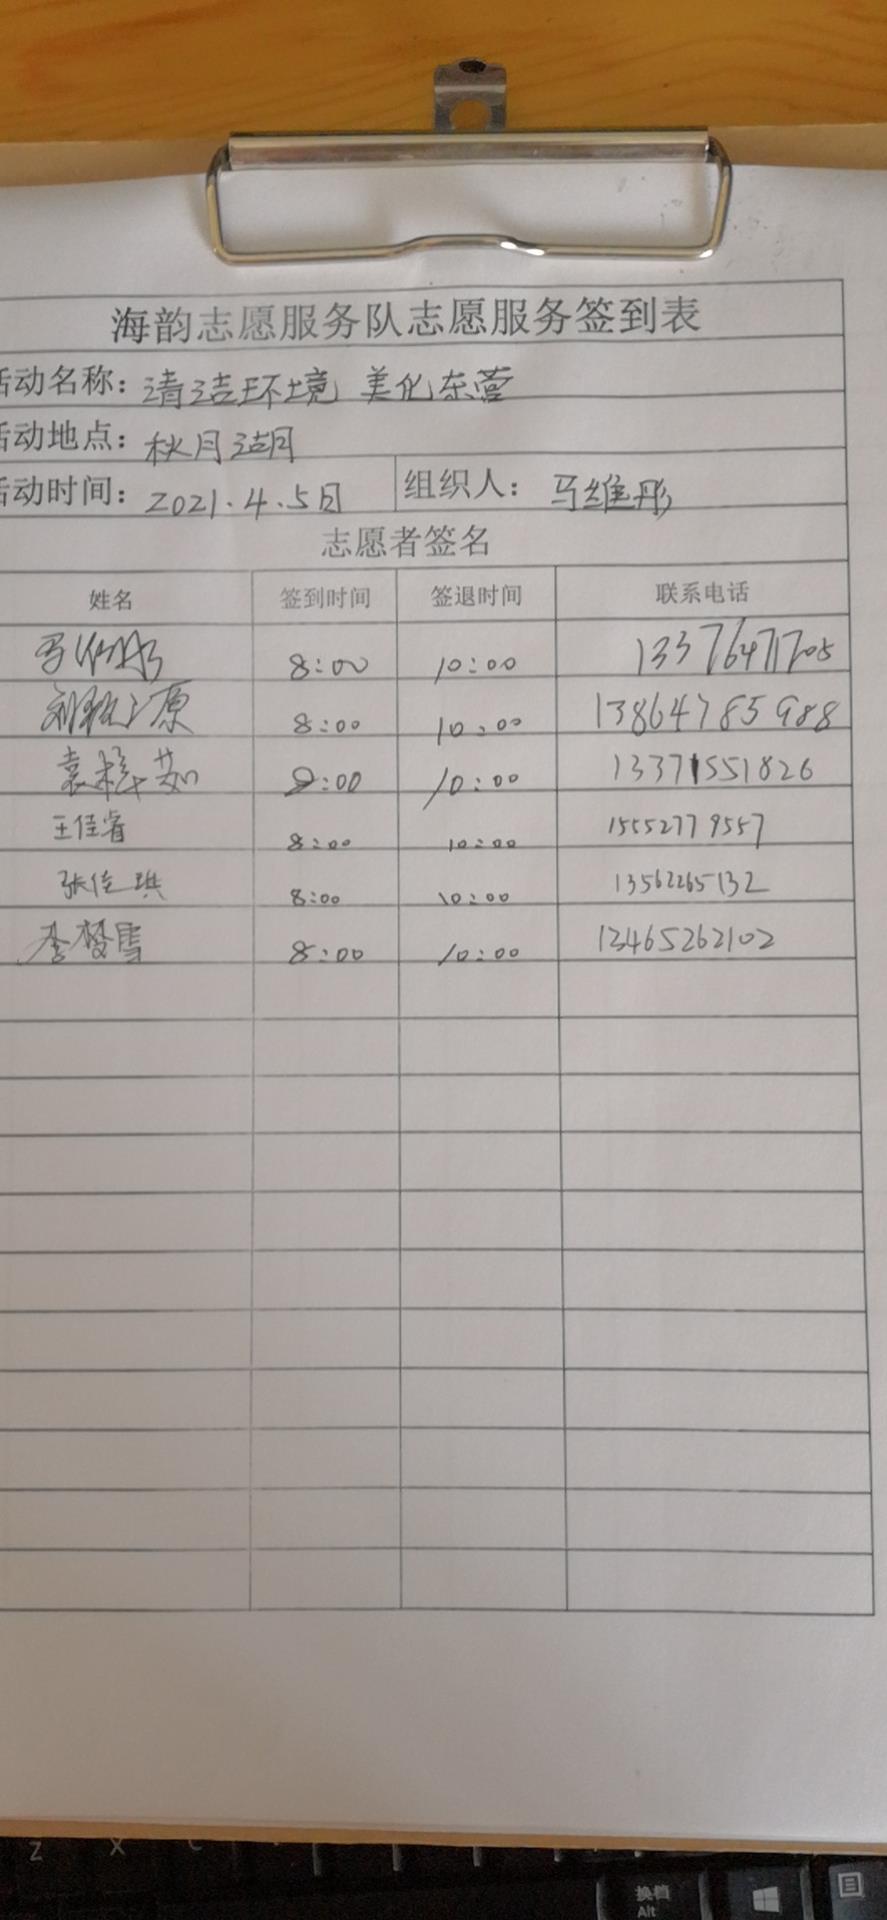 海韵志愿服务队志愿服务签到表
活动名称：清洁环境 美化东营
活动地点：秋月湖
活动时间：2021.4.5日 组织人：马维彤
志愿者签名
姓名 签到时间 签退时间 联系电话
8:00 10:00 13376471705
8:00 10:00 13864785988
袁梓茹 8:00 10:00 13371551826
王佳睿 8:00 10:00 15552779557
张佳琪 8:00 10:00 13562265132
李梦雪 8:00 10:00 13465262102
Z X C
换档
Alt